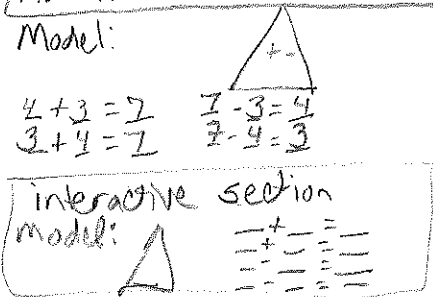 Model:
+ -
4 + 3 = 7 7 - 3 = 4
3 + 4 = 7 7 - 4 = 3
interactive section
model: _ + _ = _
_ + _ = _
_ - _ = _
_ - _ = _